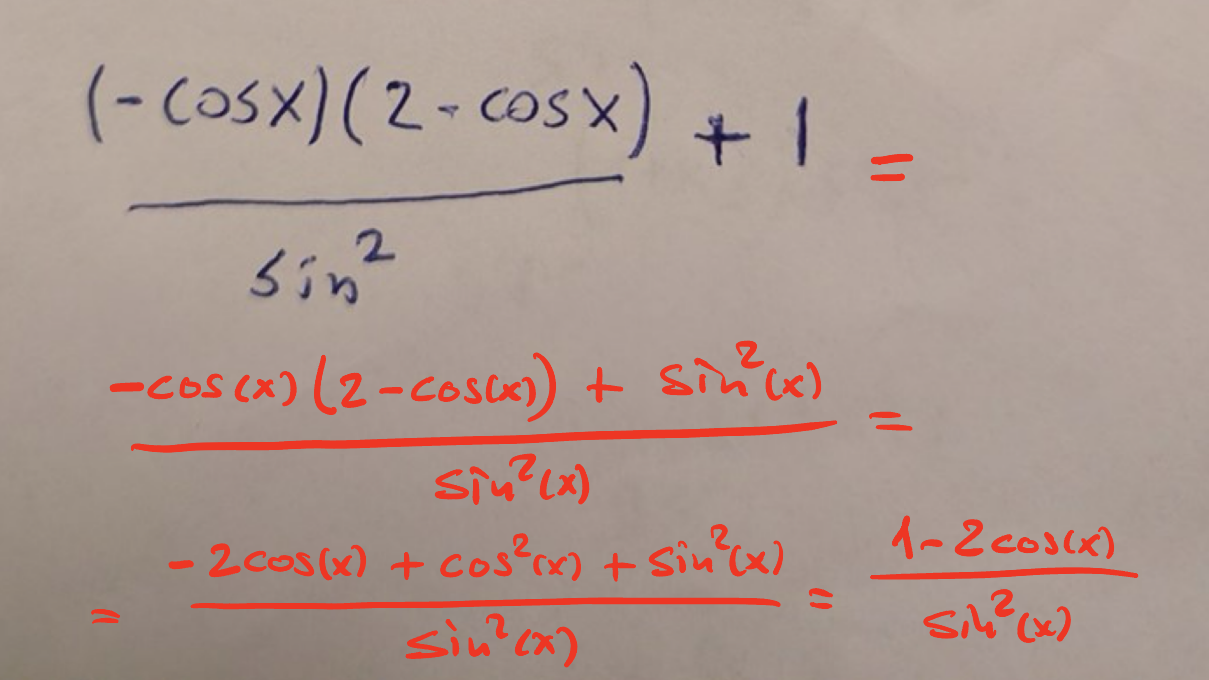 (-cosx)(2-cosx) + 1 =
sin²
-cos(x)(2-cos(x)) + sin²(x) =
sin²(x)
= -2cos(x) + cos²(x) + sin²(x) = 1-2cos(x)
sin²(x) sin²(x)